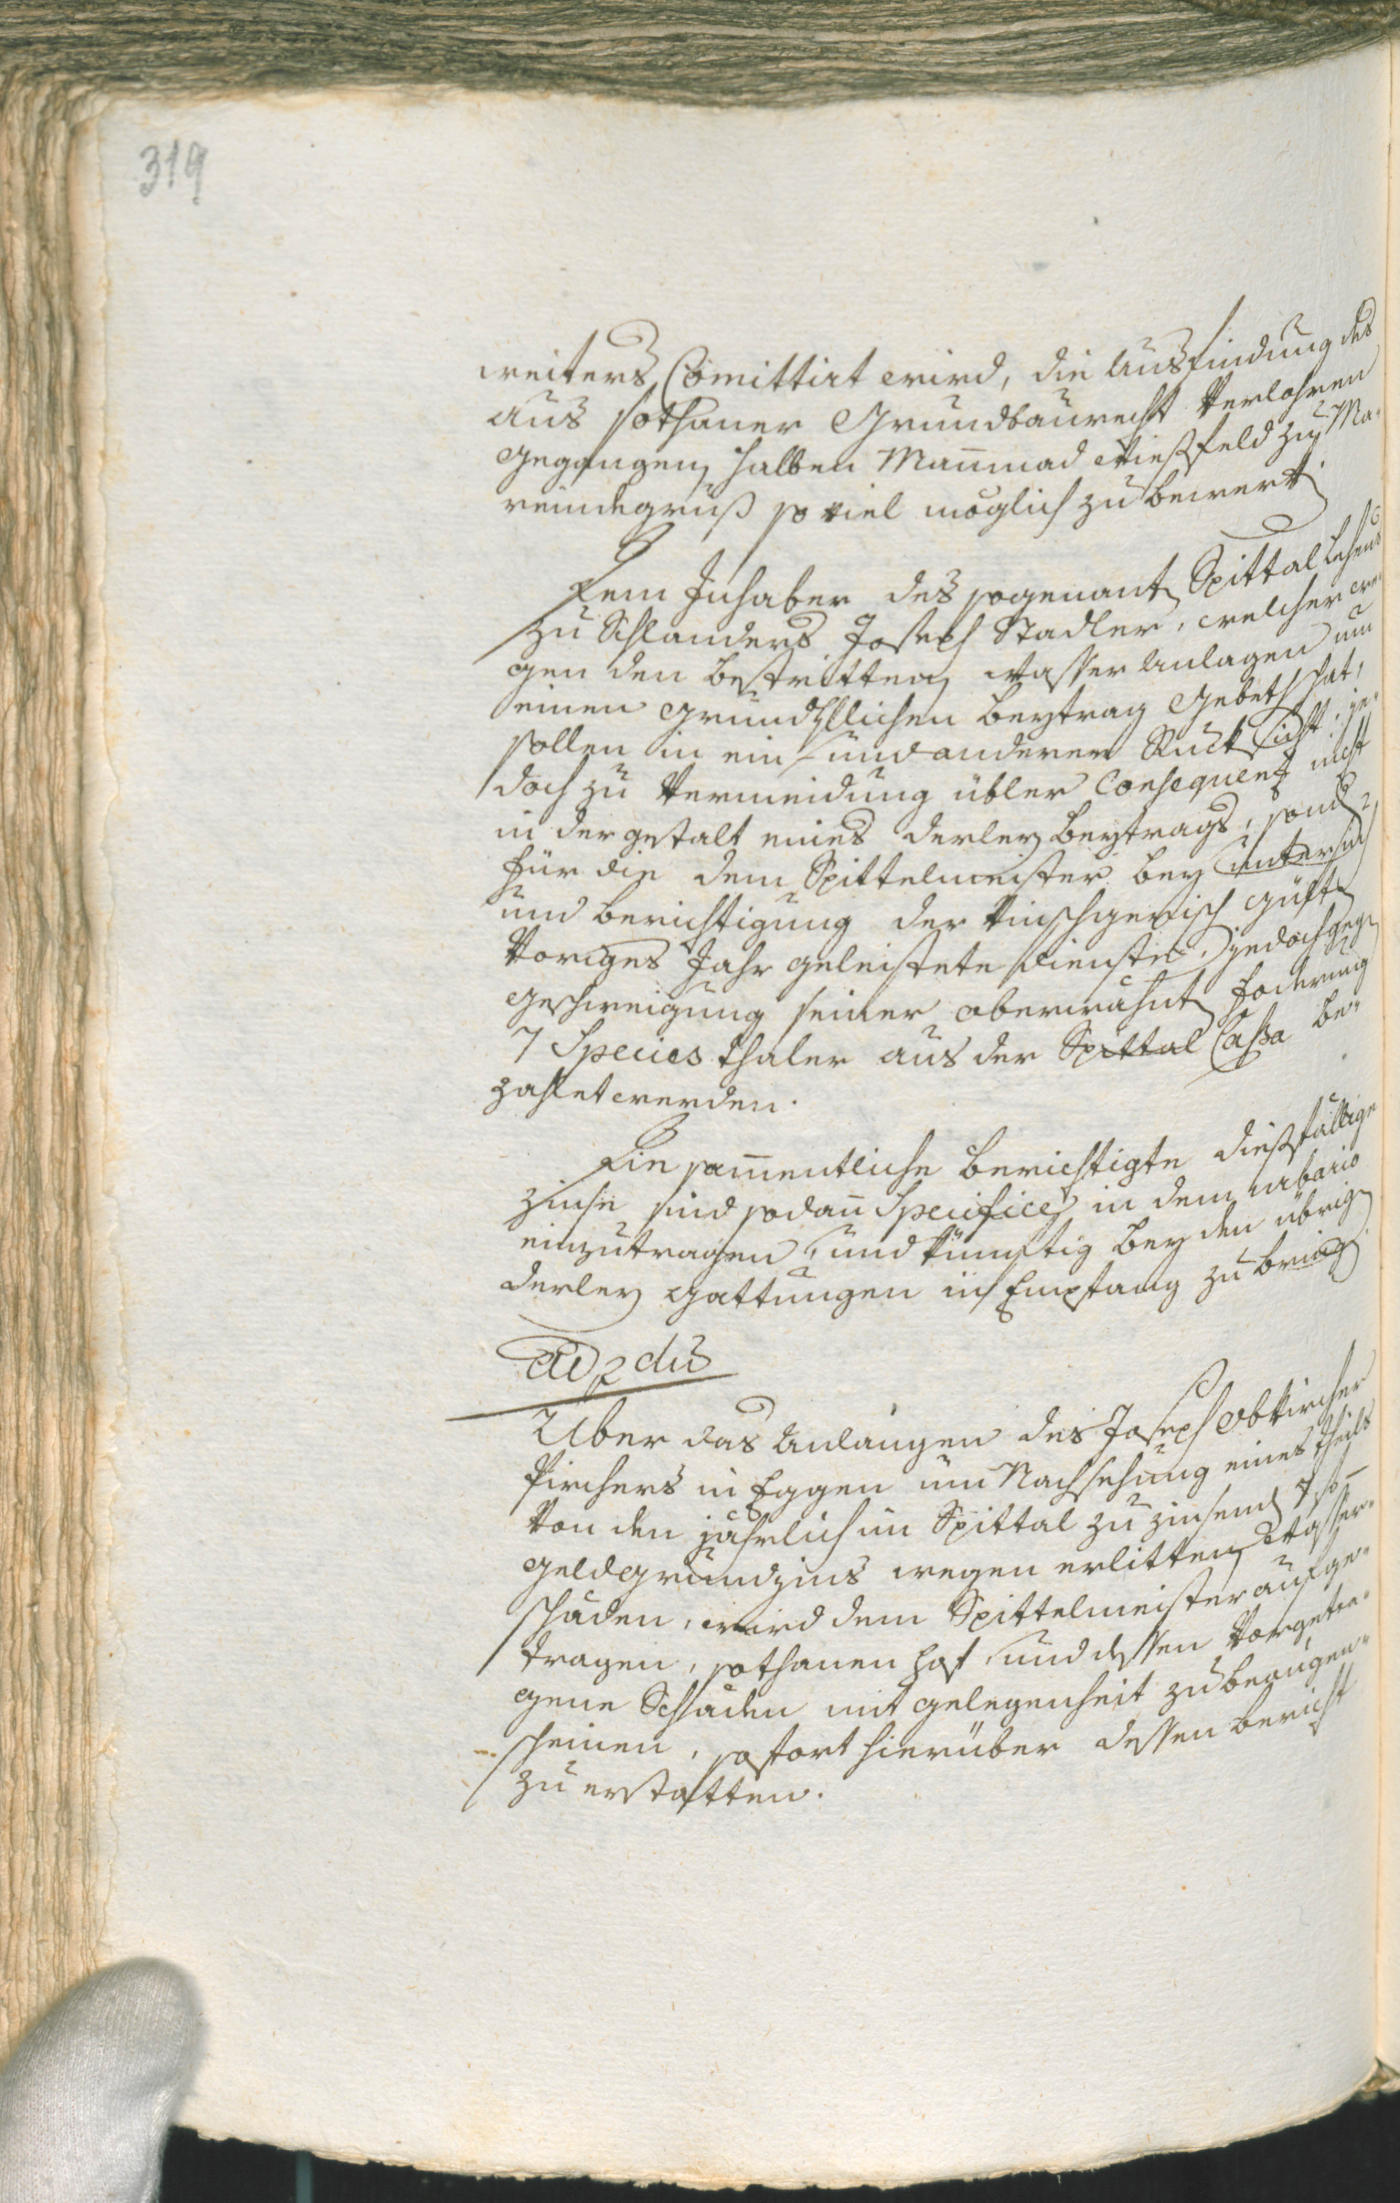 319
weiters Comittirt wird, die Ausfindung des
aus sothaner Grundbaurecht verlohren
gegangen halben Mannmad Wießfeld zu Ma-
reindegruß so viel möglich zu bewerk
Dem Inhaber des sogenant Spittal Lehens
zu Schlanders Joseph Stadler, welcher we-
gen den bestrittten Wasser Anlagen um
einen grundzinslichen Beytrag gebeth hat,
sollen in ein- und anderer Rucksicht, je-
doch zu Vermeidung übler Consequenz nicht
in der gestalt eines derley Beytrags, sond
für die dem Spittelmeister bey untersuch
und Berichtigung der Vinschgerisch gült
voriges Jahr geleistete Dienste, jedoch geg
geschweigung seiner oberwähnt Foderung
7 Species thaler aus der Spittal Cassa be-
zahlet werden.
Die sammentliche berichtigte dießfällige
Zinse sind sodann Specifice in dem urbario
einzutragen, und künftig bey den übrig
derley Gattungen in Empfang zu bring
Ad 2dus
Über das Anlangen des Joseph Obkircher
Pirchers in Eggen um Nachsehung eines theils
von den jährlich im Spittal zu zinsend 7 f
geldgrundzins wegen erlitten Wasser-
schäden, wird dem Spittelmeister aufge-
tragen, sothanen Hof und dessen vorgetra-
gene Schäden mit gelegenheit zu beaugen-
scheinen, sofort hierüber dessen bericht
zu erstatten.